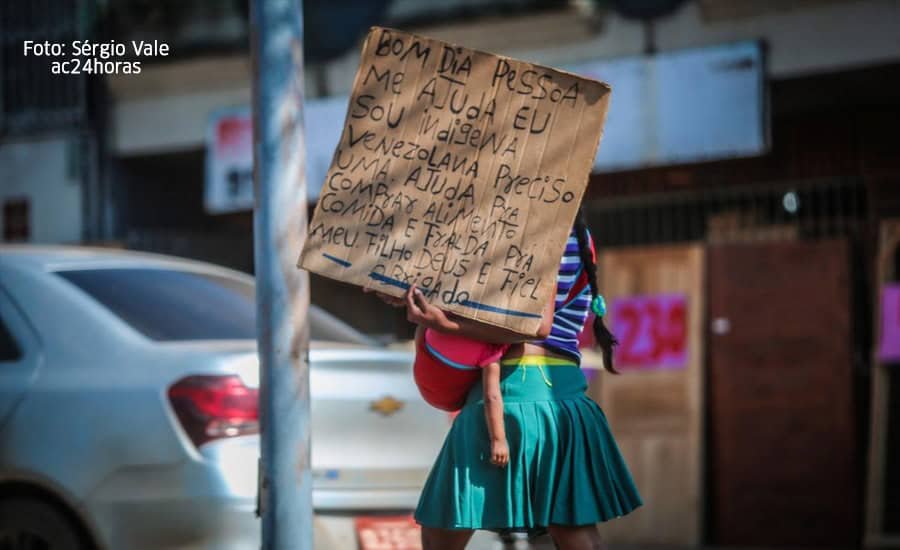 Foto: Sérgio Vale
ac24horas
BOM DIA PESSOA
ME AJUDA EU
SOU indigENA
VENEZOLANA PRECISO
UMA AJUDA PRA
COMPRAR ALIMENTO
COMIDA E FRALDA PRA
MEU FILHO DEUS E FIEL
OBRIGADO
239